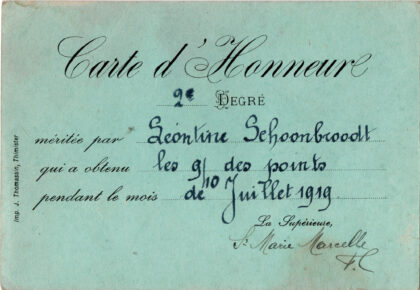 Carte d'Honneur
2e DEGRÉ
méritée par Léontine Schoonbroodt
qui a obtenu les 9/10 des points
pendant le mois de Juillet 1919.
La Supérieure,
Sr Marie Marcelle
F. C
Imp. J. Thomassin, Thimister